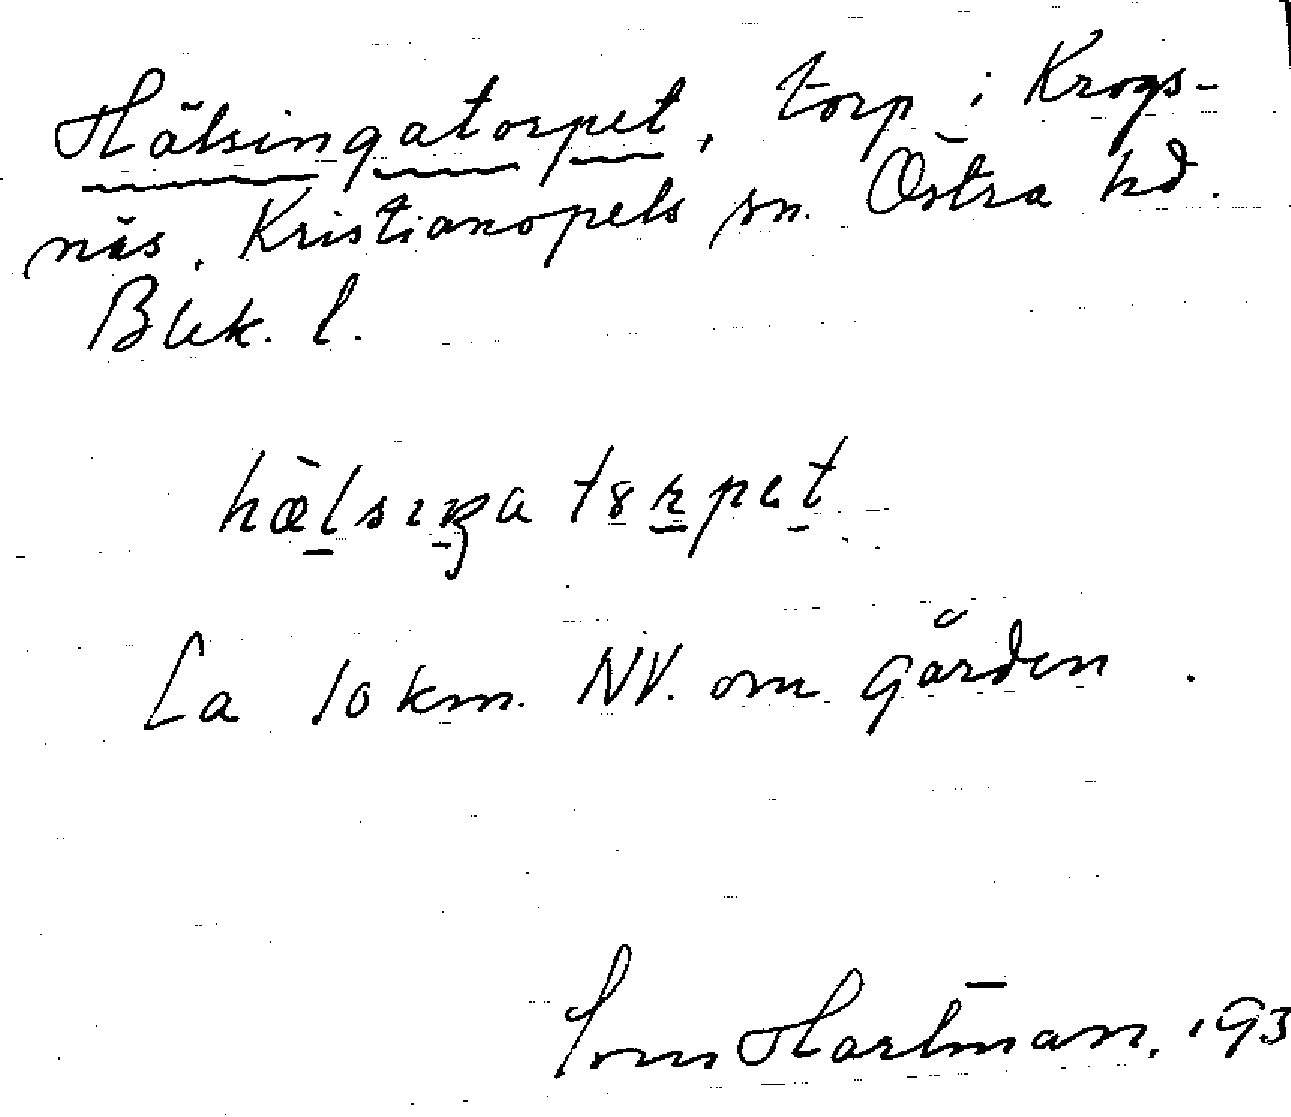 Hälsingatorpet, torp i Krogs-
näs, Kristianopels sn. Östra hd.
Blek. l.
hælsıŋa tɵrpet
Ca 10 km. NV. om gården.
Hartman, 193